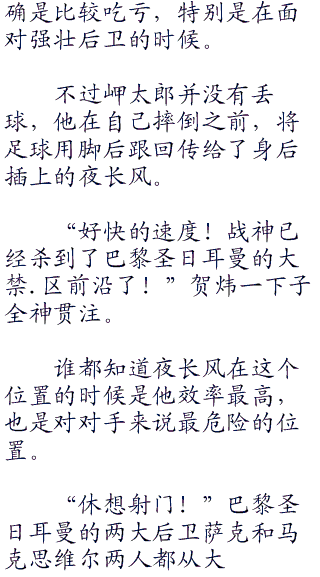 确是比较吃亏，特别是在面
对强壮后卫的时候。
不过岬太郎并没有丢
球，他在自己摔倒之前，将
足球用脚后跟回传给了身后
插上的夜长风。
“好快的速度！战神已
经杀到了巴黎圣日耳曼的大
禁.区前沿了！”贺炜一下子
全神贯注。
谁都知道夜长风在这个
位置的时候是他效率最高，
也是对对手来说最危险的位
置。
“休想射门！”巴黎圣
日耳曼的两大后卫萨克和马
克思维尔两人都从大